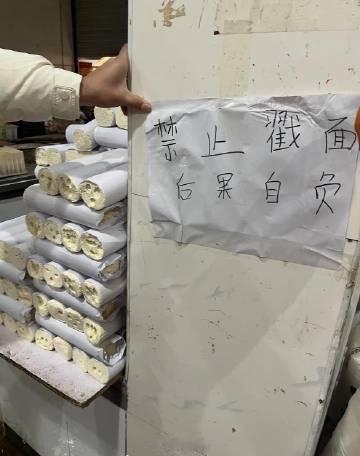 禁止戳面
后果自负